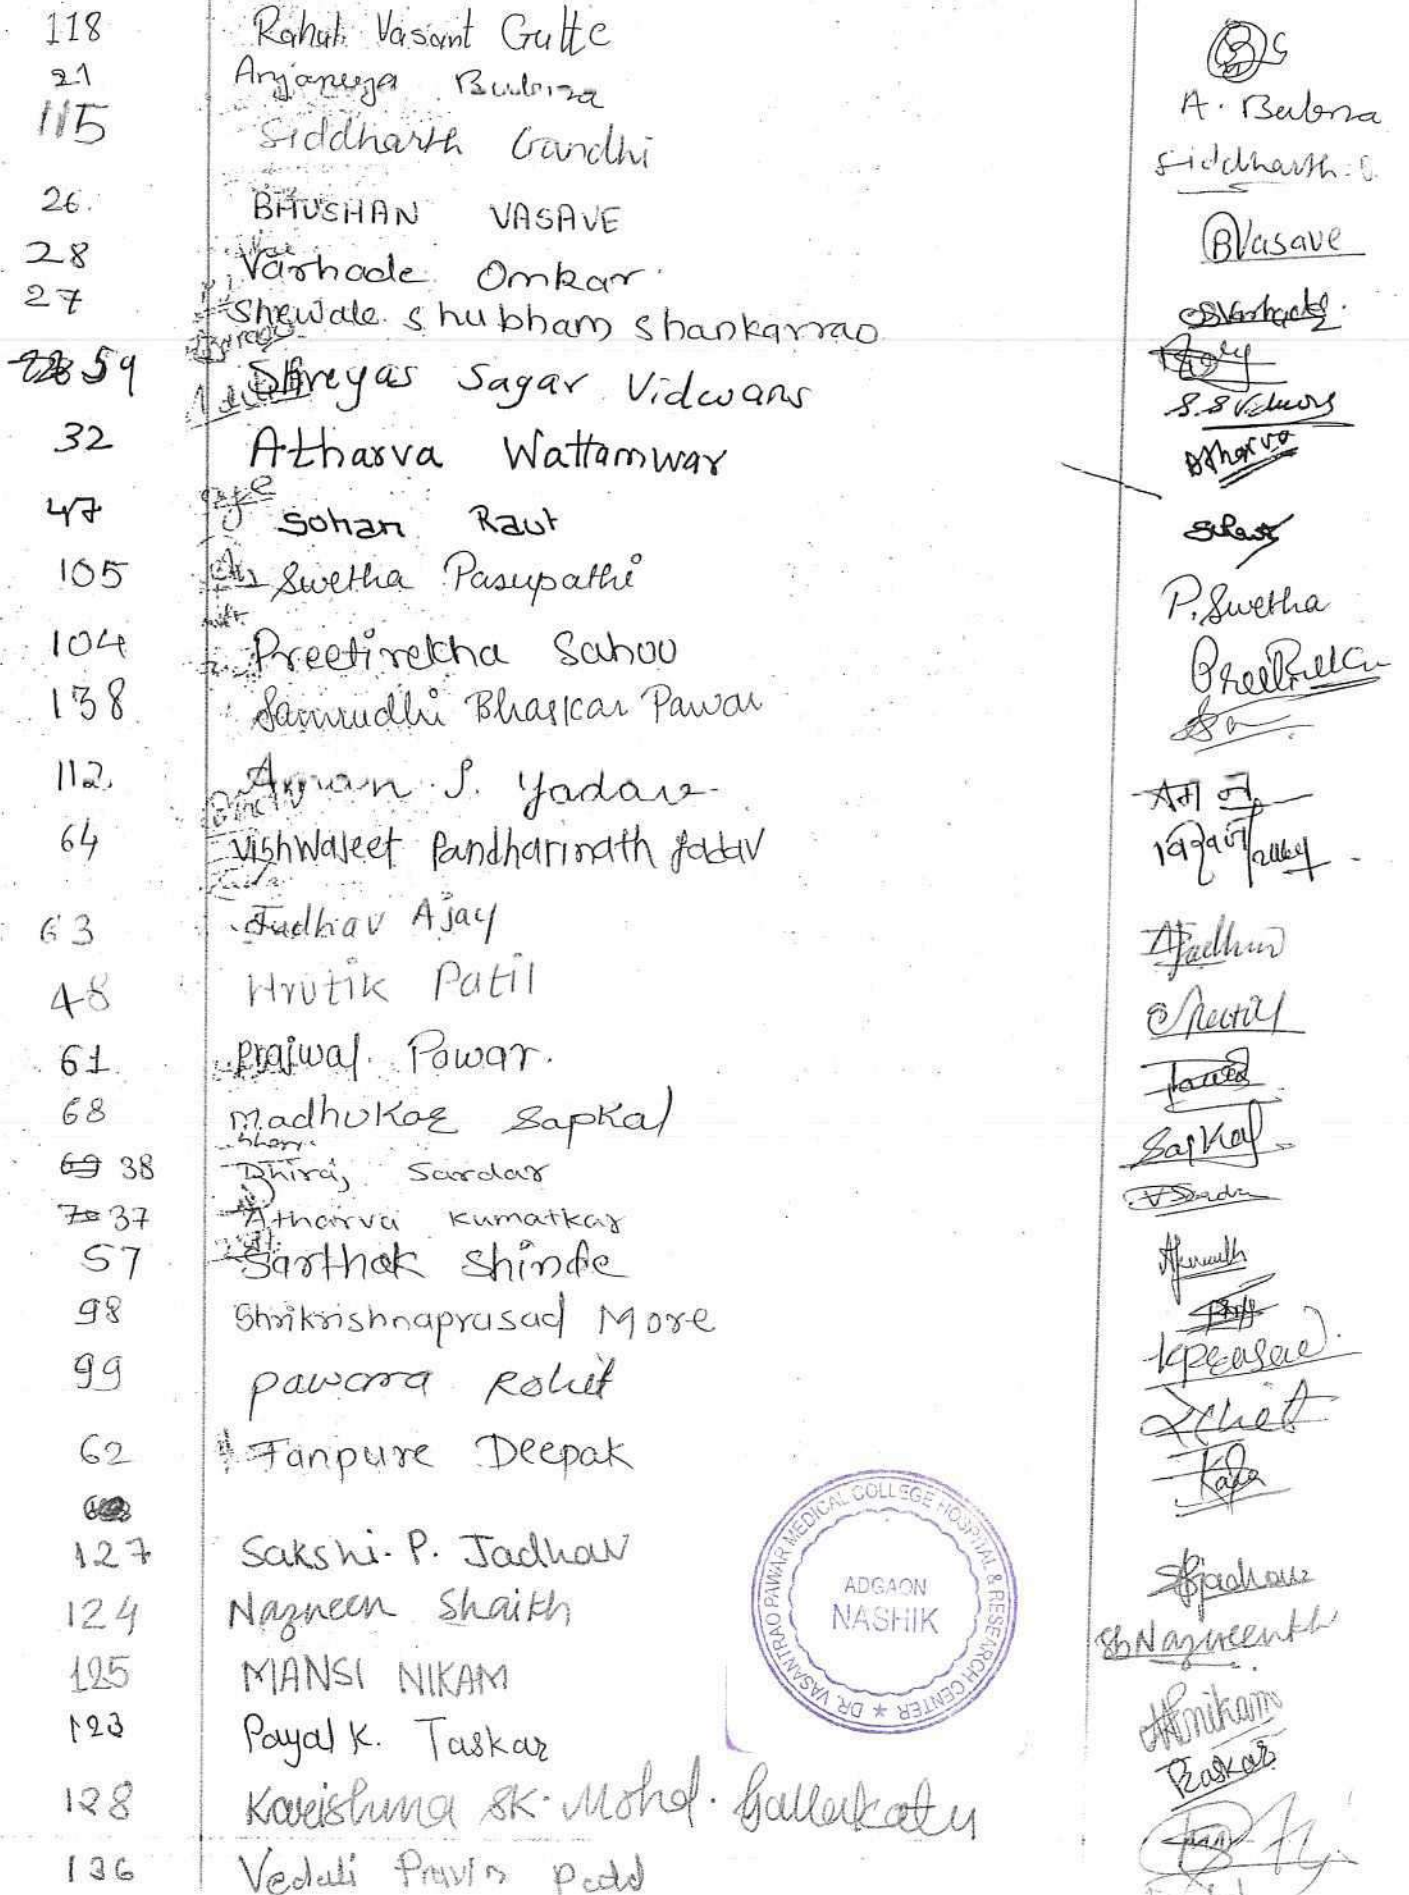 118 Rahul Vasant Gutte
21 Anjaneya Bubna A. Bubna
115 Siddharth Gandhi Siddharth.G.
26. BHUSHAN VASAVE BVasave
28 Varhade Omkar.
27 Shewale Shubham Shankarrao
59 Shreyas Sagar Vidwans S.S Vidwans
32 Atharva Wattamwar Atharva
47 Sohan Raut
105 Swetha Pasupathi P. Swetha
104 Preetirekha Sahoo
138 Samrudhi Bhaskar Pawar
112. Aman S. Yadav अमन
64 Vishwajeet Pandharinath Jadav
63 Jadhav Ajay AJadhav
48 Hrutik Patil
61 Prajwal Pawar.
68 Madhukar Sapkal Sapkal
38 Dhiraj Sardar
37 Atharva Kumatkar
57 Sarthak Shinde
98 Shrikrishnaprasad More
99 Pawara Rohit KPrasad
62 Tanpure Deepak Rohit
127 Sakshi. P. Jadhav SPjadhav
124 Nazneen Shaikh Sh Nazneen
125 MANSI NIKAM nikam
123 Payal K. Taskar Taskar
128 Kareishma SK. Mohd.
136 Vedali Pravin
DR. VASANTRAO PAWAR MEDICAL COLLEGE HOSPITAL & RESEARCH CENTER ★
ADGAON
NASHIK